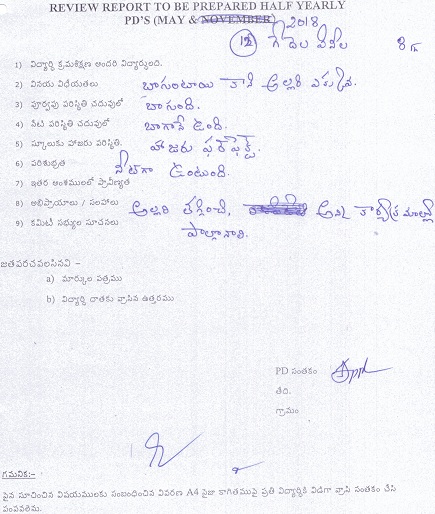 REVIEW REPORT TO BE PREPARED HALF YEARLY
PD'S (MAY & NOVEMBER) 2018
12 గేదెల 8th
1) విద్యార్థి క్రమశిక్షణ అందరి విద్యార్థులది.
2) వినయ విధేయతలు బాసుంటాయి కాని అల్లరి ఎక్కువ.
3) పూర్వపు పరిస్థితి చదువులో బాసుంది.
4) నేటి పరిస్థితి చదువులో బాగానే ఉంది.
5) స్కూలుకు హాజరు పరిస్థితి. హాజరు ఫర్‌ఫెక్ట్.
6) పరిశుభ్రత నీట్‌గా ఉంటుంది.
7) ఇతర అంశములలో ప్రావీణ్యత
8) అభిప్రాయాలు / సలహాలు అల్లరి తగ్గించి, అన్ని కార్యక్రమాల్లో
9) కమిటీ సభ్యుల సూచనలు పాల్గొనాలి.
జతపరచవలసినవి –
a) మార్కుల పత్రము
b) విద్యార్థి దాతకు వ్రాసిన ఉత్తరము
PD సంతకం
తేది.
గ్రామం
గమనిక:-
పైన సూచించిన విషయములకు సంబంధించిన వివరణ A4 సైజు కాగితముపై ప్రతి విద్యార్థికి విడిగా వ్రాసి సంతకం చేసి
పంపవలెను.